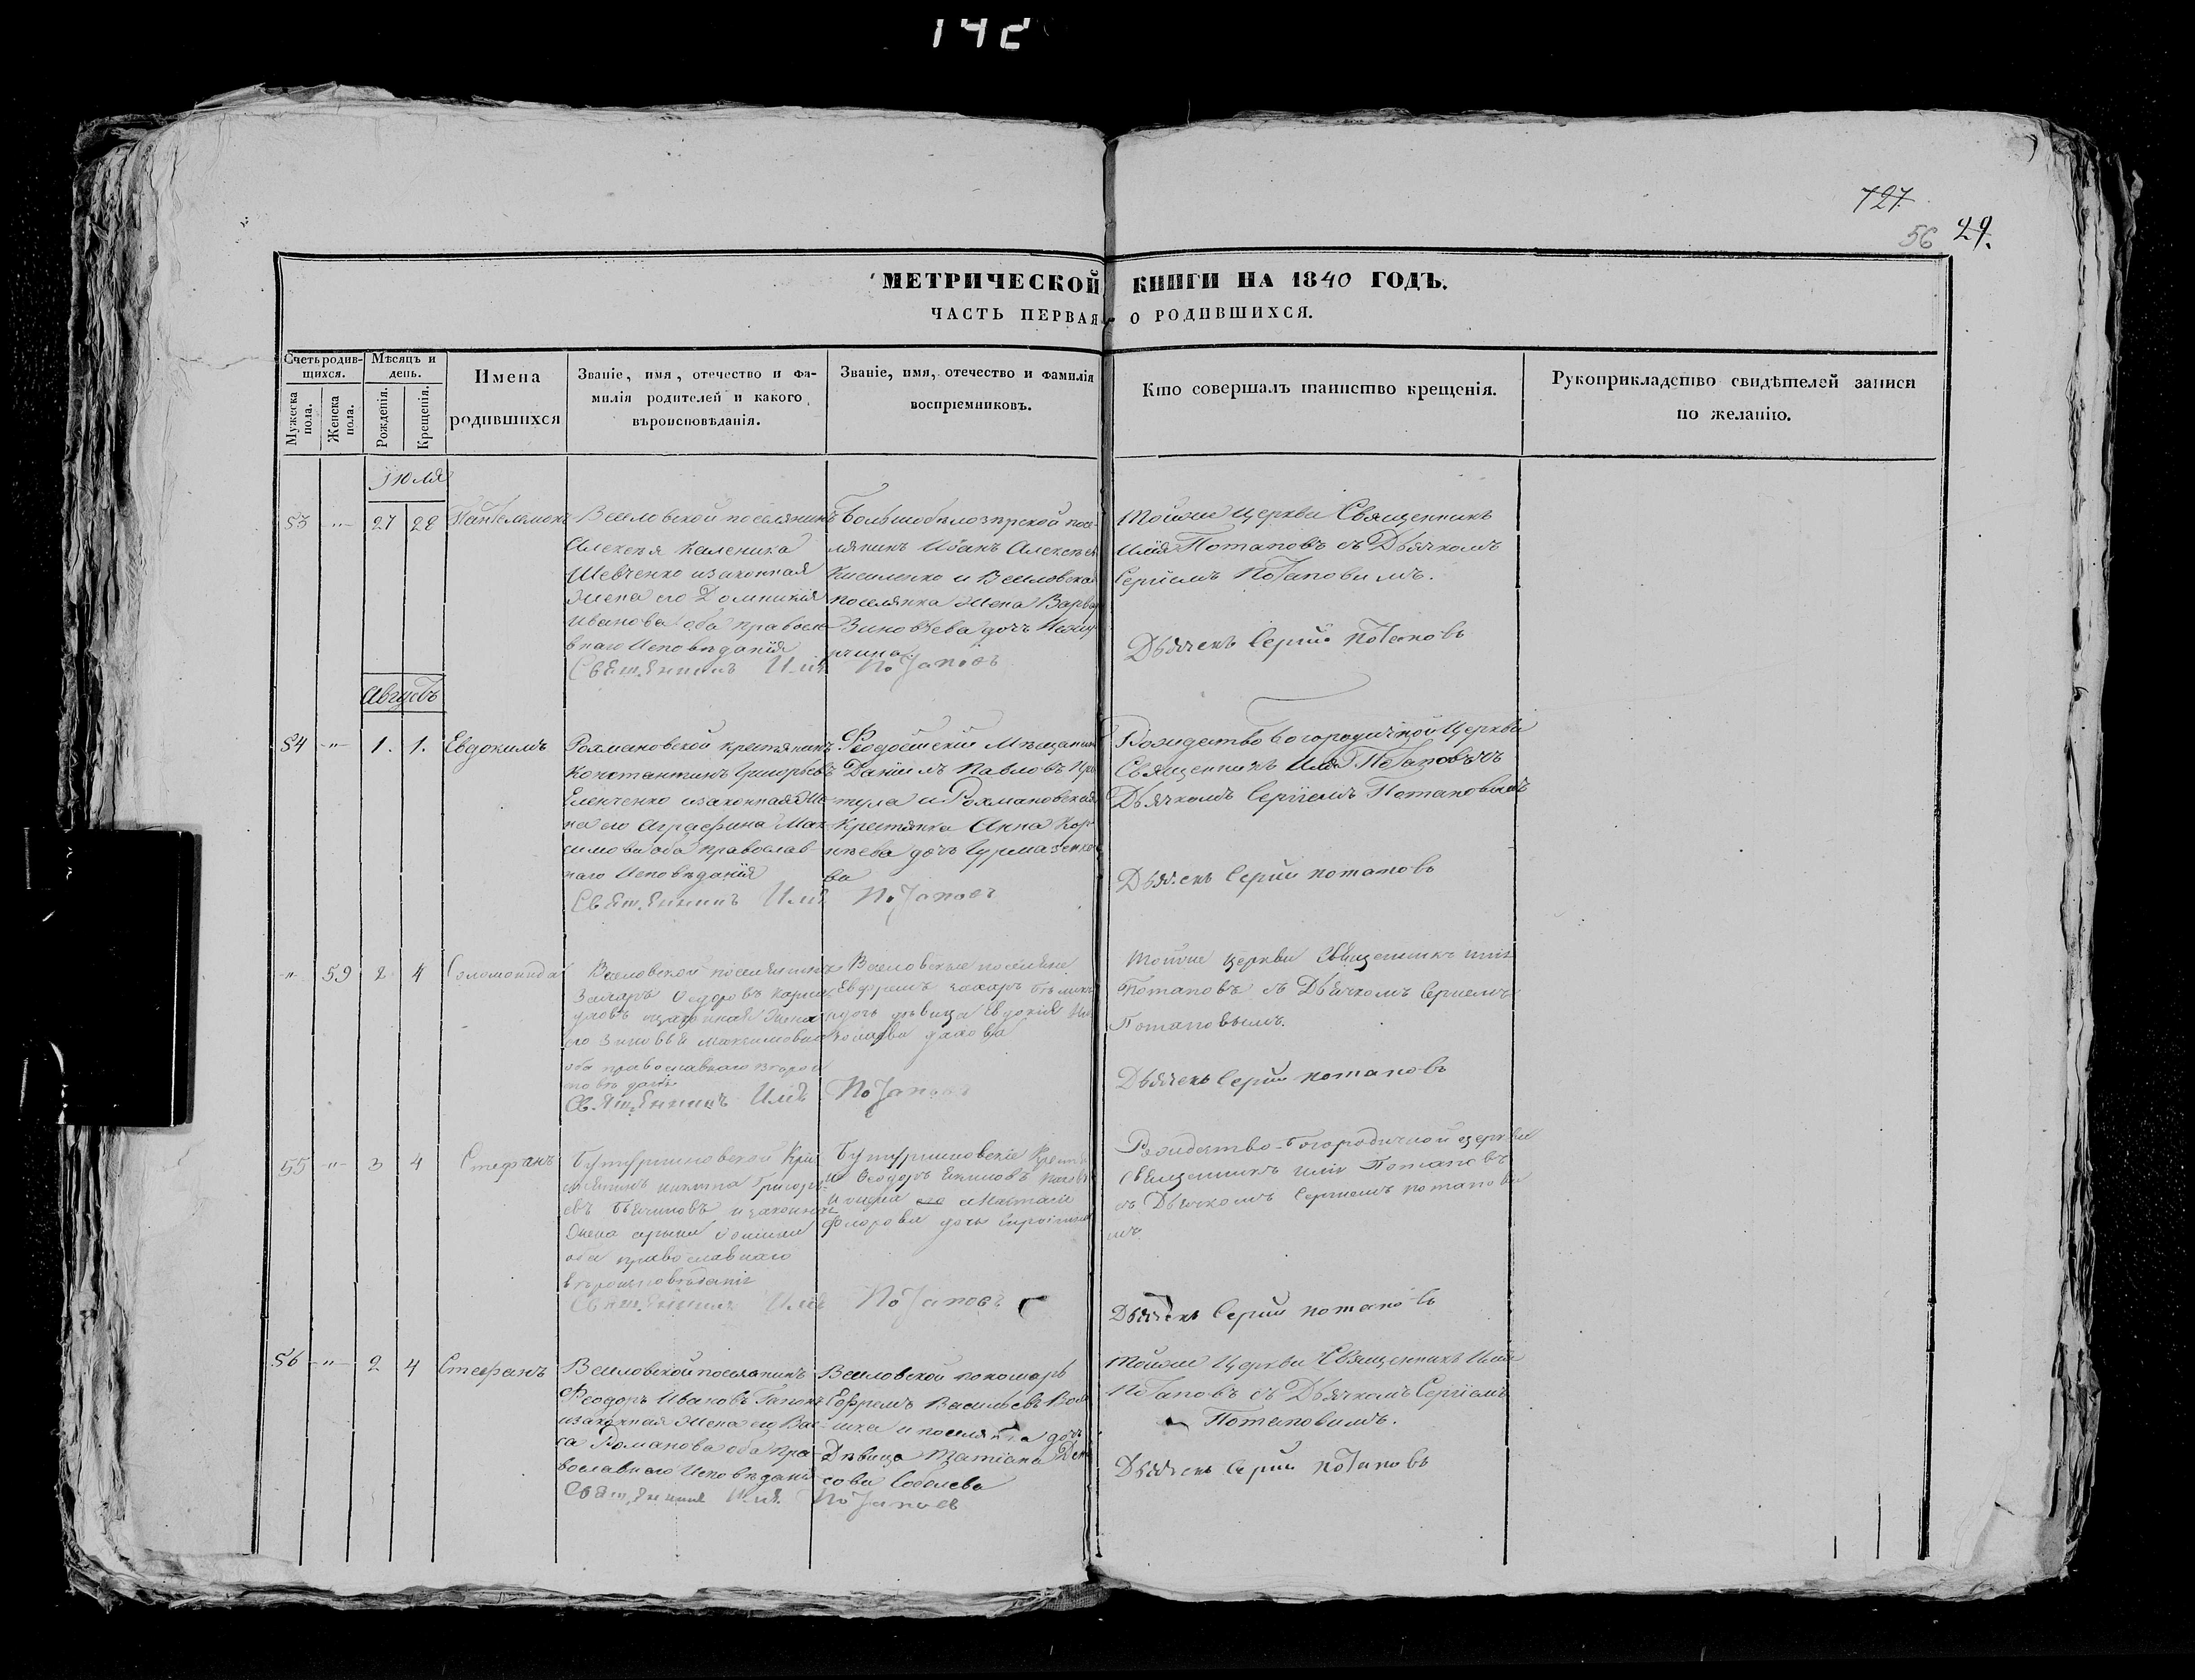 142
727
56 29.
МЕТРИЧЕСКОЙ КНИГИ НА 1840 ГОДЪ.
ЧАСТЬ ПЕРВАЯ О РОДИВШИХСЯ.
Счетъ родив-
щихся.
Мужеска пола.
Женска пола.
Мѣсяцъ и
день.
Рожденія.
Крещенія.
Имена
родившихся
Званіе, имя, отечество и фа-
милія родителей и какого
вѣроисповѣданія.
Званіе, имя, отечество и фамилія
воспріемниковъ.
Кто совершалъ таинство крещенія.
Рукоприкладство свидѣтелей записи
по желанію.
Іюля
53 -"- 27 28 Пантелемонъ
Веселовской поселянинъ
Алексѣя Каленика
Шевченко изаконная
Жена его Домникія
Иванова оба правосла-
внаго Исповѣданія
Большобѣлозѣрской посе-
лянинъ Иванъ Алексѣевъ
Кисиленко и Веселовская
поселянка Жена Варва
Зиновѣева дочь
Священникъ Илія Потаповъ
Тойже Церкви Священникъ
Илія Потаповъ съ Дьячкомъ
Сергіемъ Потаповимъ.
Дьячекъ Сергій Потаповъ
Августъ
54 -"- 1. 1. Евдокимъ
Рохмановской крестянинъ
Константинъ Григорьевъ
Еленченко изаконная Же-
на его Аграфина Мак-
симова оба православ-
наго Исповѣданія
Феодосійскій Мѣщанинъ
Даніилъ Павловъ
и Рохмановская
Крестянка Анна Кор-
нѣева дочь
ва
Священникъ Илія Потаповъ
Рождество Богородичной Церкви
Священникъ Илія Потаповъ съ
Дьячкомъ Сергіемъ Потаповимъ
Дьячекъ Сергій Потаповъ
-"- 59 2 4 Соломонида
Веселовской поселянинъ
Захаръ Федоровъ
изаконная Жена
его Зиновья Максимовна
оба православнаго
Веселовские поселяне
Ефремъ Захаръ
дочь дѣвица Евдокія
Священникъ Илія Потаповъ
Тойже церкви Священникъ Илія
Потаповъ съ Дьячкомъ Сергиемъ
Потаповымъ.
Дьячекъ Сергій Потаповъ
55 -"- 3 4 Стефанъ
Бутурлиновской Кре
никита Григорь-
евъ изаконная
Жена
оба православнаго
вѣроисповѣданія
Бутурлиновскіе
Феодоръ Екимовъ
его Настасія
Федорова дочь
Священникъ Илія Потаповъ
Рождество-Богородичной церкви
Священникъ Илія Потаповъ
съ Дьячкомъ Сергиемъ Потапови
мъ
Дьячекъ Сергій Потаповъ
56 -"- 2 4 Стефанъ
Веселовской поселянинъ
Феодоръ Ивановъ Гапонъ
изаконная Жена его Вас-
са Романова оба пра-
вославнаго Исповѣданія
Веселовской пономарь
Ефремъ Васильевъ
и поселянка дочь
Дѣвица Татіана Дени
сова Соболева
Священникъ Илія Потаповъ
Тойже Церкви Священникъ Илія
Потаповъ съ Дьячкомъ Сергіемъ
Потаповимъ.
Дьячекъ Сергій Потаповъ